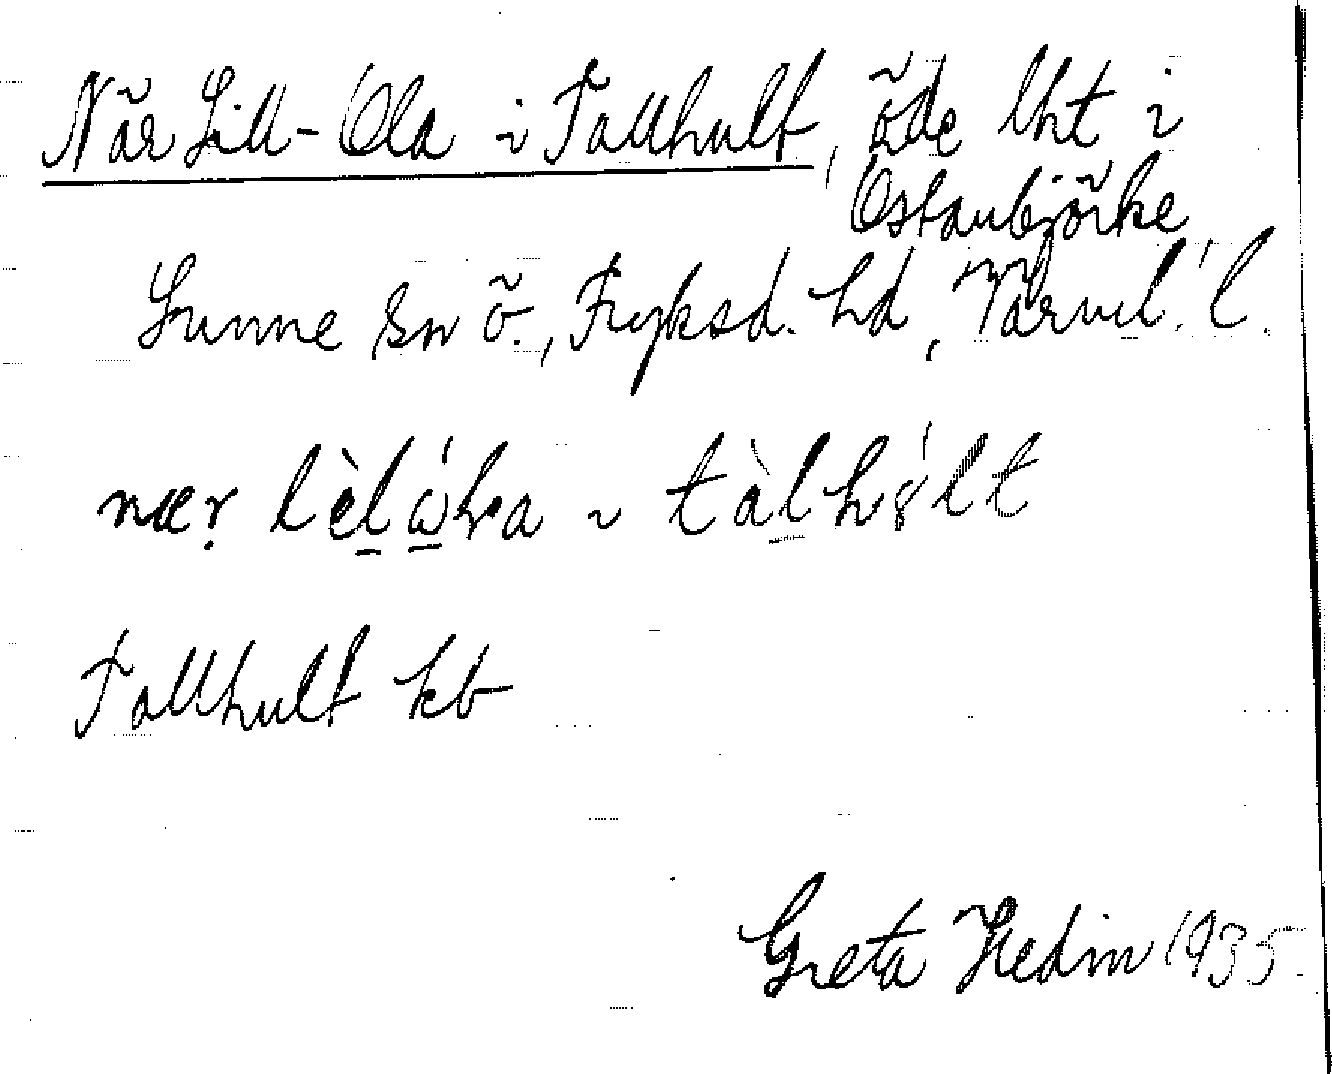 När Lill-Ola i Tallhult, öde lht i
Östanbjörke,
Sunne sn ö., Fryksd. hd, Värml. l.
nær lèlώla i tàlhýlt
Tallhult kb
Greta Hedin 1935.